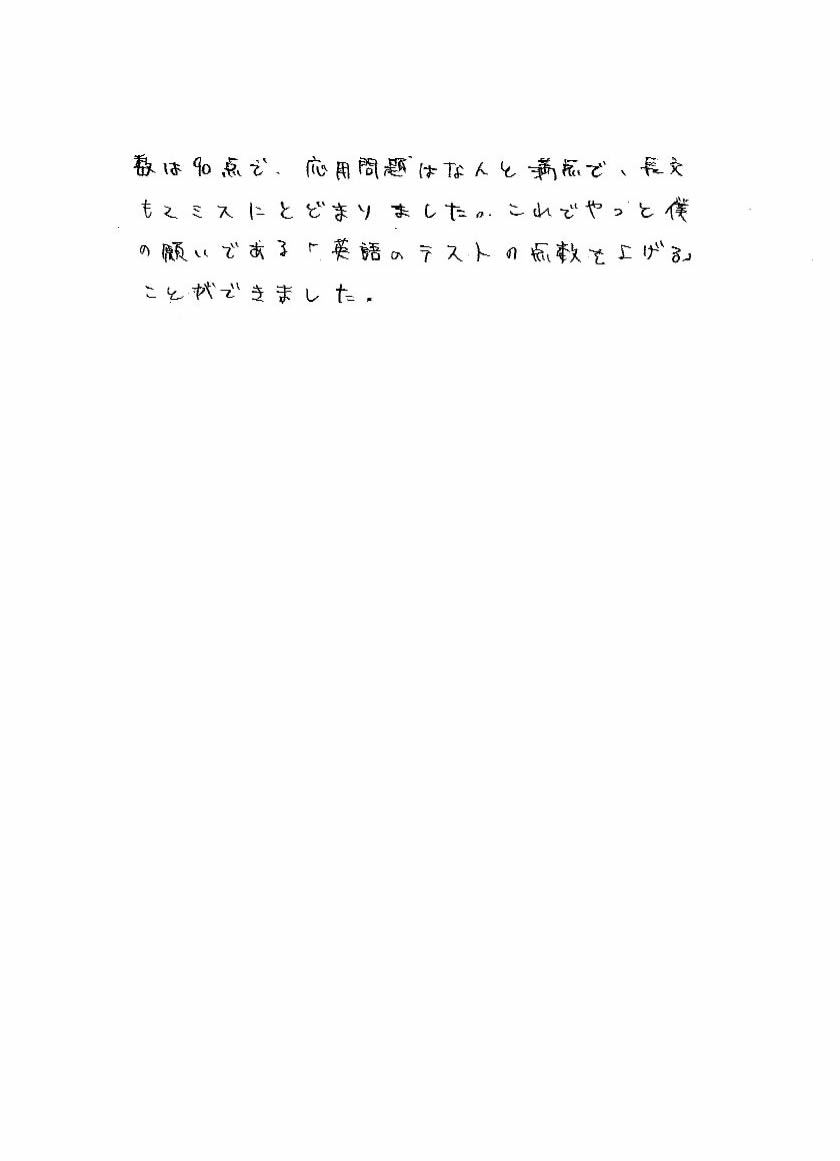 数は90点で、応用問題はなんと満点で、長文
も2ミスにとどまりました。これでやっと僕
の願いである「英語のテストの点数を上げる」
ことができました。